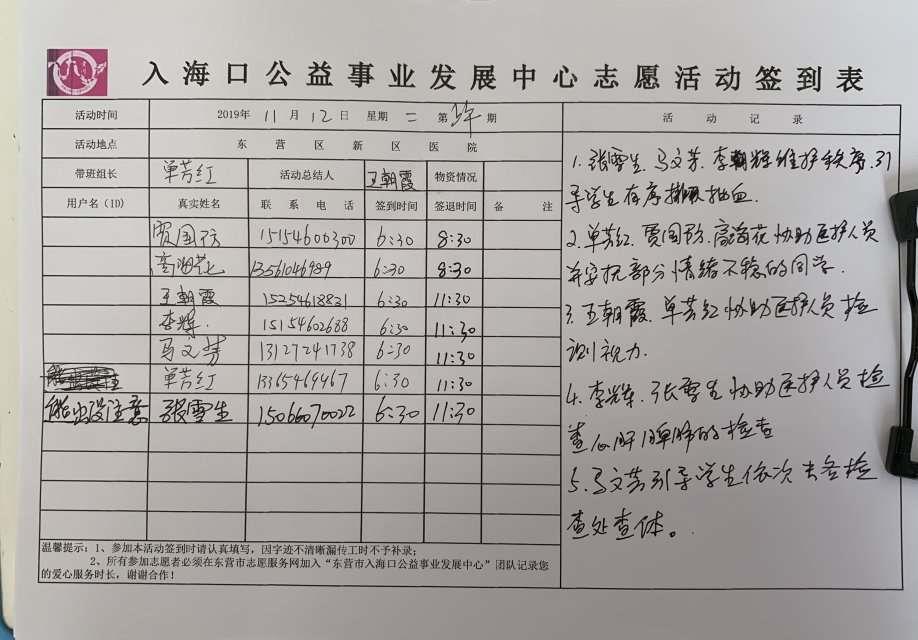 入海口公益事业发展中心志愿活动签到表
活动时间 2019年 11 月 12 日 星期 二 第 期
活动地点 东营区新区医院
带班组长 单芳红 活动总结人 王朝霞 物资情况
用户名(ID) 真实姓名 联系电话 签到时间 签退时间 备注
贾国防 15154600300 6:30 8:30
高海花 13561046989 6:30 8:30
王朝霞 15254618831 6:30 11:30
李辉. 15154602688 6:30 11:30
马文芳 13127241738 6:30 11:30
单芳红 13365469467 6:30 11:30
熊出没注意 张雪生 15066070022 6:30 11:30
温馨提示:1、参加本活动签到时请认真填写,因字迹不清晰漏传工时不予补录;
2、所有参加志愿者必须在东营市志愿服务网加入“东营市入海口公益事业发展中心”团队记录您
的爱心服务时长,谢谢合作!
活动记录
1. 张雪生.马文芳.李朝辉维护秩序.引
导学生有序抽血.
2. 单芳红.贾国防.高海花协助医护人员
并安抚部分情绪不稳的同学.
3. 王朝霞.单芳红协助医护人员检
测视力.
4. 李辉.张雪生协助医护人员检
查心肝脾肺的检查
5. 马文芳引导学生依次去各检
查处查体。